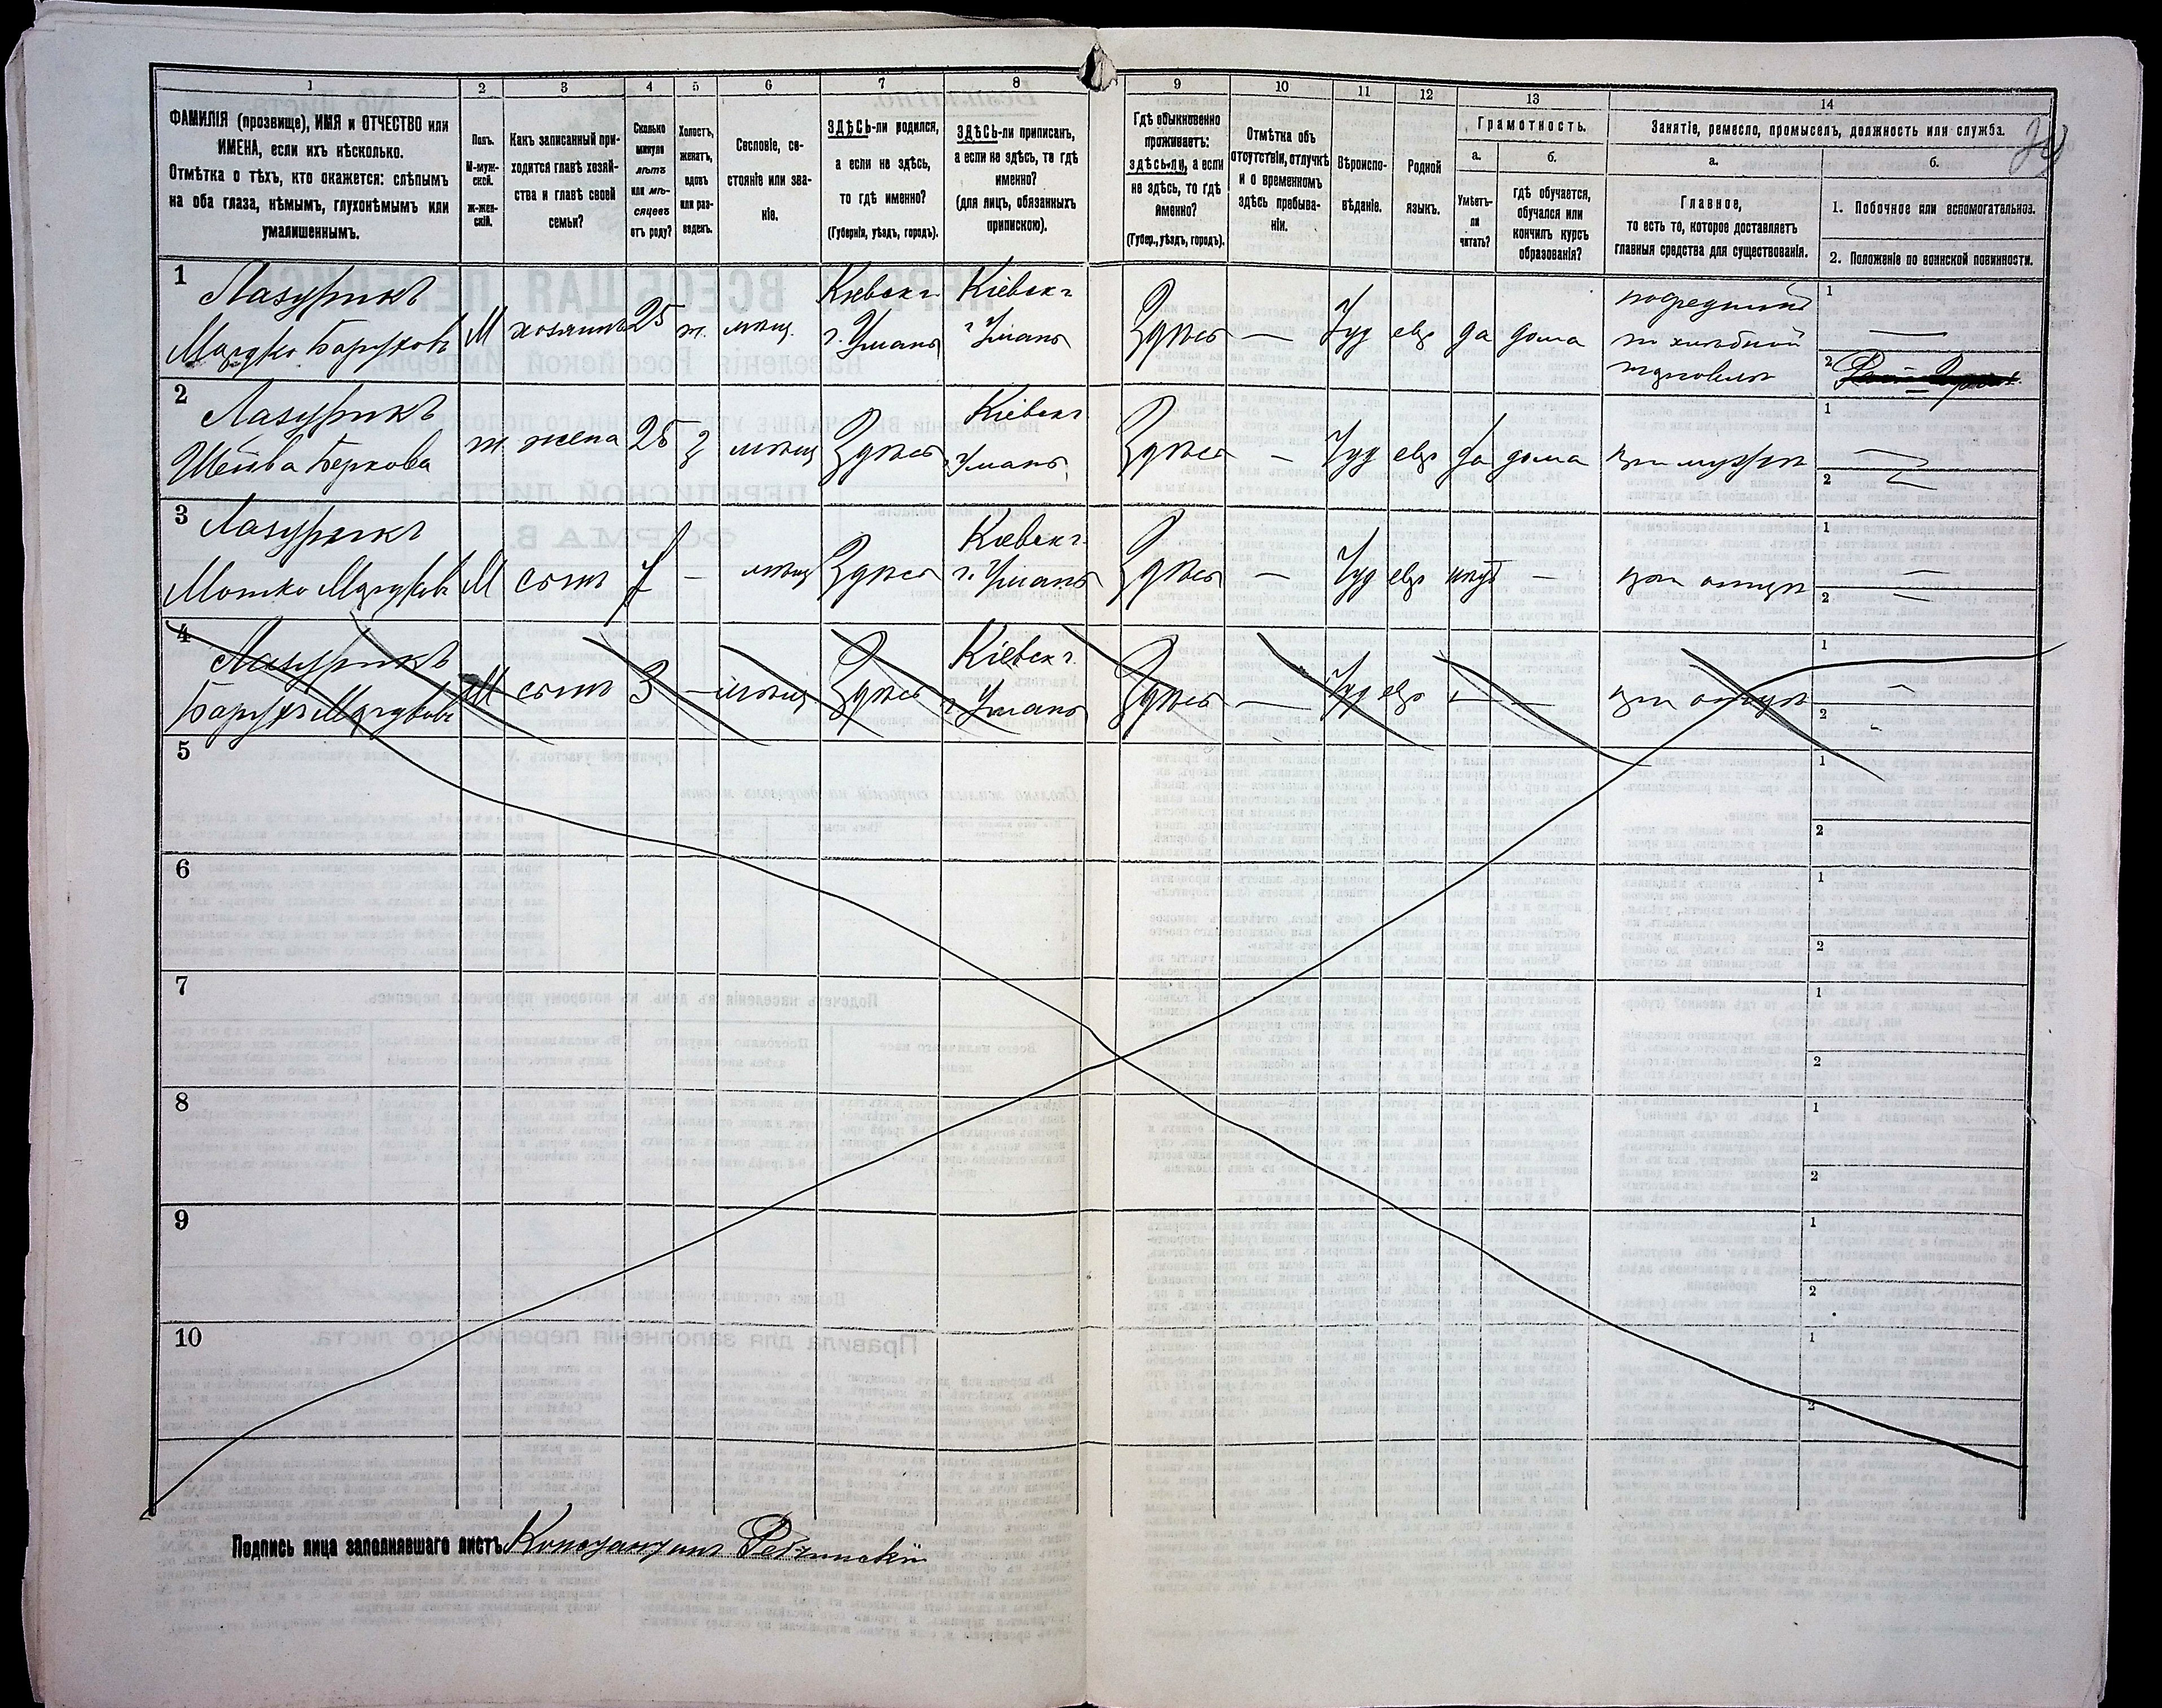 1 2 3 4 5 6 7 8 9 10 11 12 13 14
ФАМИЛІЯ (прозвище), ИМЯ и ОТЧЕСТВО или
ИМЕНА, если ихъ нѣсколько.
Отмѣтка о тѣхъ, кто окажется: слѣпымъ
на оба глаза, нѣмымъ, глухонѣмымъ или
умалишеннымъ.
Полъ.
М-муж-
ской.
Ж-жен-
скій.
Какъ записанный при-
ходится главѣ хозяй-
ства и главѣ своей
семьи?
Сколько
минуло
лѣтъ
или мѣ-
сяцевъ
отъ роду?
Холостъ,
женатъ,
вдовъ
или раз-
веденъ.
Сословіе, со-
стояніе или зва-
ніе.
ЗДѢСЬ-ли родился,
а если не здѣсь,
то гдѣ именно?
(Губернія, уѣздъ, городъ).
ЗДѢСЬ-ли приписанъ,
а если не здѣсь, то гдѣ
именно?
(для лицъ, обязанныхъ
припискою).
Гдѣ обыкновенно
проживаетъ:
здѣсь-ли, а если
не здѣсь, то гдѣ
именно?
(Губер., уѣздъ, городъ).
Отмѣтка объ
отсутствіи, отлучкѣ
и о временномъ
здѣсь пребыва-
ніи.
Вѣроиспо-
вѣданіе.
Родной
языкъ.
Грамотность.
а.
Умѣетъ-
ли
читать?
б.
гдѣ обучается,
обучался или
кончилъ курсъ
образованія?
Занятіе, ремесло, промыселъ, должность или служба.
а.
Главное,
то есть то, которое доставляетъ
главныя средства для существованія.
б.
1. Побочное или вспомогательное.
2. Положеніе по воинской повинности.
1 Лазурикъ Кіевск г Кіевск г посредникъ 1
Барухов М хозяинъ 25 ж. мѣщ. г. Умань г Умань Здѣсь — Іуд евр да дома по хлѣбной —
торговлѣ 2
2 Лазурикъ Кіевск г 1
Шейва Беркова ж жена 25 з мѣщ Здѣсь г Умань Здѣсь — Іуд евр да дома при мужѣ —
2 —
3 Лазурикъ Кіевск г. 1
Мошко М сынъ 7 — мѣщ Здѣсь г. Умань Здѣсь — Іуд евр — при отцѣ —
2 —
4 Лазурикъ Кіевск г. 1
Барухъ М сынъ 3 — мѣщ Здѣсь г Умань Здѣсь — Іуд евр — — при отцѣ —
2
5 1
2
6 1
2
7 1
2
8 1
2
9 1
2
10 1
2
Подпись лица заполнявшаго листъ Константин